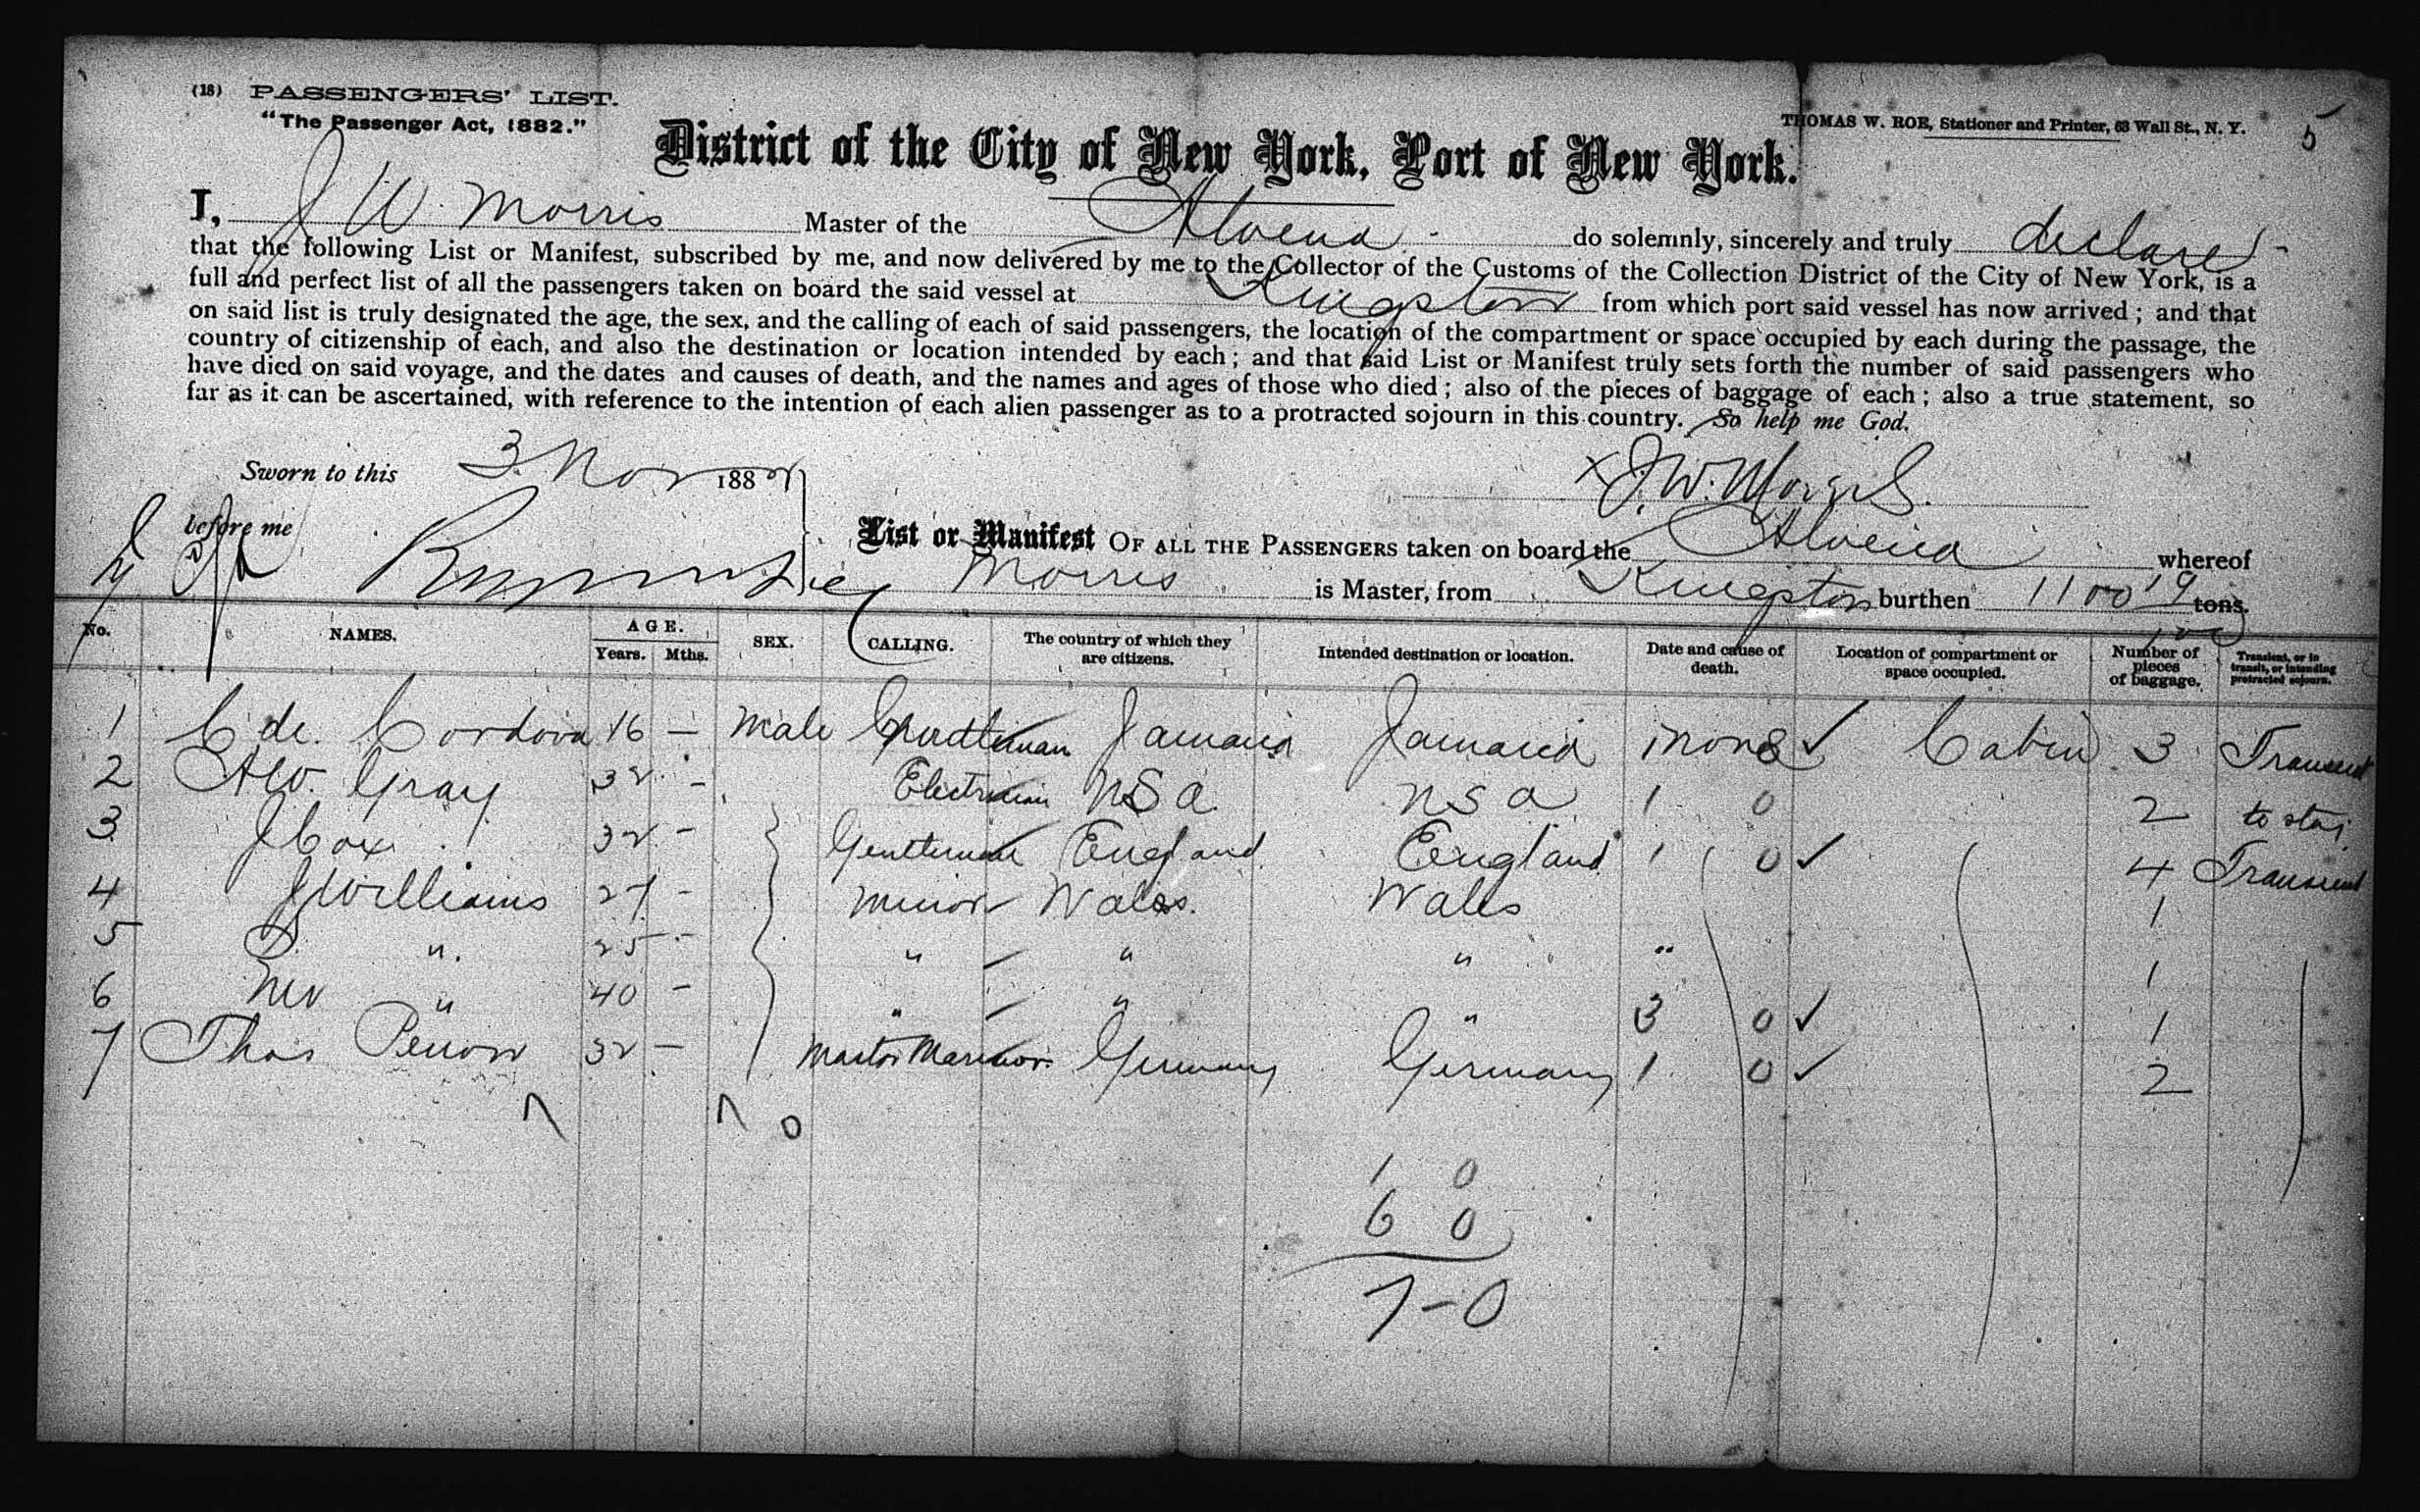 (18) PASSENGERS' LIST.
"The Passenger Act, 1882."
THOMAS W. ROE, Stationer and Printer, 63 Wall St., N. Y.
5
District of the City of New York, Port of New York.
I, J W. Morris Master of the Alvena do solemnly, sincerely and truly declare
that the following List or Manifest, subscribed by me, and now delivered by me to the Collector of the Customs of the Collection District of the City of New York, is a
full and perfect list of all the passengers taken on board the said vessel at Kingston from which port said vessel has now arrived; and that
on said list is truly designated the age, the sex, and the calling of each of said passengers, the location of the compartment or space occupied by each during the passage, the
country of citizenship of each, and also the destination or location intended by each; and that said List or Manifest truly sets forth the number of said passengers who
have died on said voyage, and the dates and causes of death, and the names and ages of those who died; also of the pieces of baggage of each; also a true statement, so
far as it can be ascertained, with reference to the intention of each alien passenger as to a protracted sojourn in this country. So help me God.
Sworn to this 3 Nov 188
J. W. Morris
before me
List or Manifest OF ALL THE PASSENGERS taken on board the Alvena whereof
Morris is Master, from Kingston burthen 1100 19/100 tons.
No. NAMES. AGE. Years. Mths. SEX. CALLING. The country of which they are citizens. Intended destination or location. Date and cause of death. Location of compartment or space occupied. Number of pieces of baggage. Transient, or in transit, or intending protracted sojourn.
1 C de. Cordova 16 — Male Gentleman Jamaica Jamaica none ✓ Cabin 3 Transient
2 A W. Gray 32 - Electrician USA USA 1 0 2 to stay
3 J Cox 32 - Gentleman England England 1 0 ✓ 4 Transient
4 J Williams 27 - Minor Wales. Wales 1
5 P. " 25 - " " " " 1
6 " 40 - " " " 3 0 ✓ 1
7 Thos 32 — Master Marinor Germany Germany 1 0 ✓ 2
7 7 0
1 0
6 0
7-0